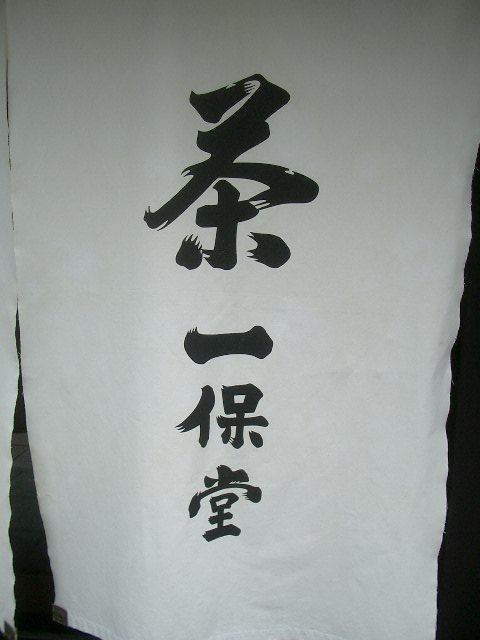 茶
一保堂